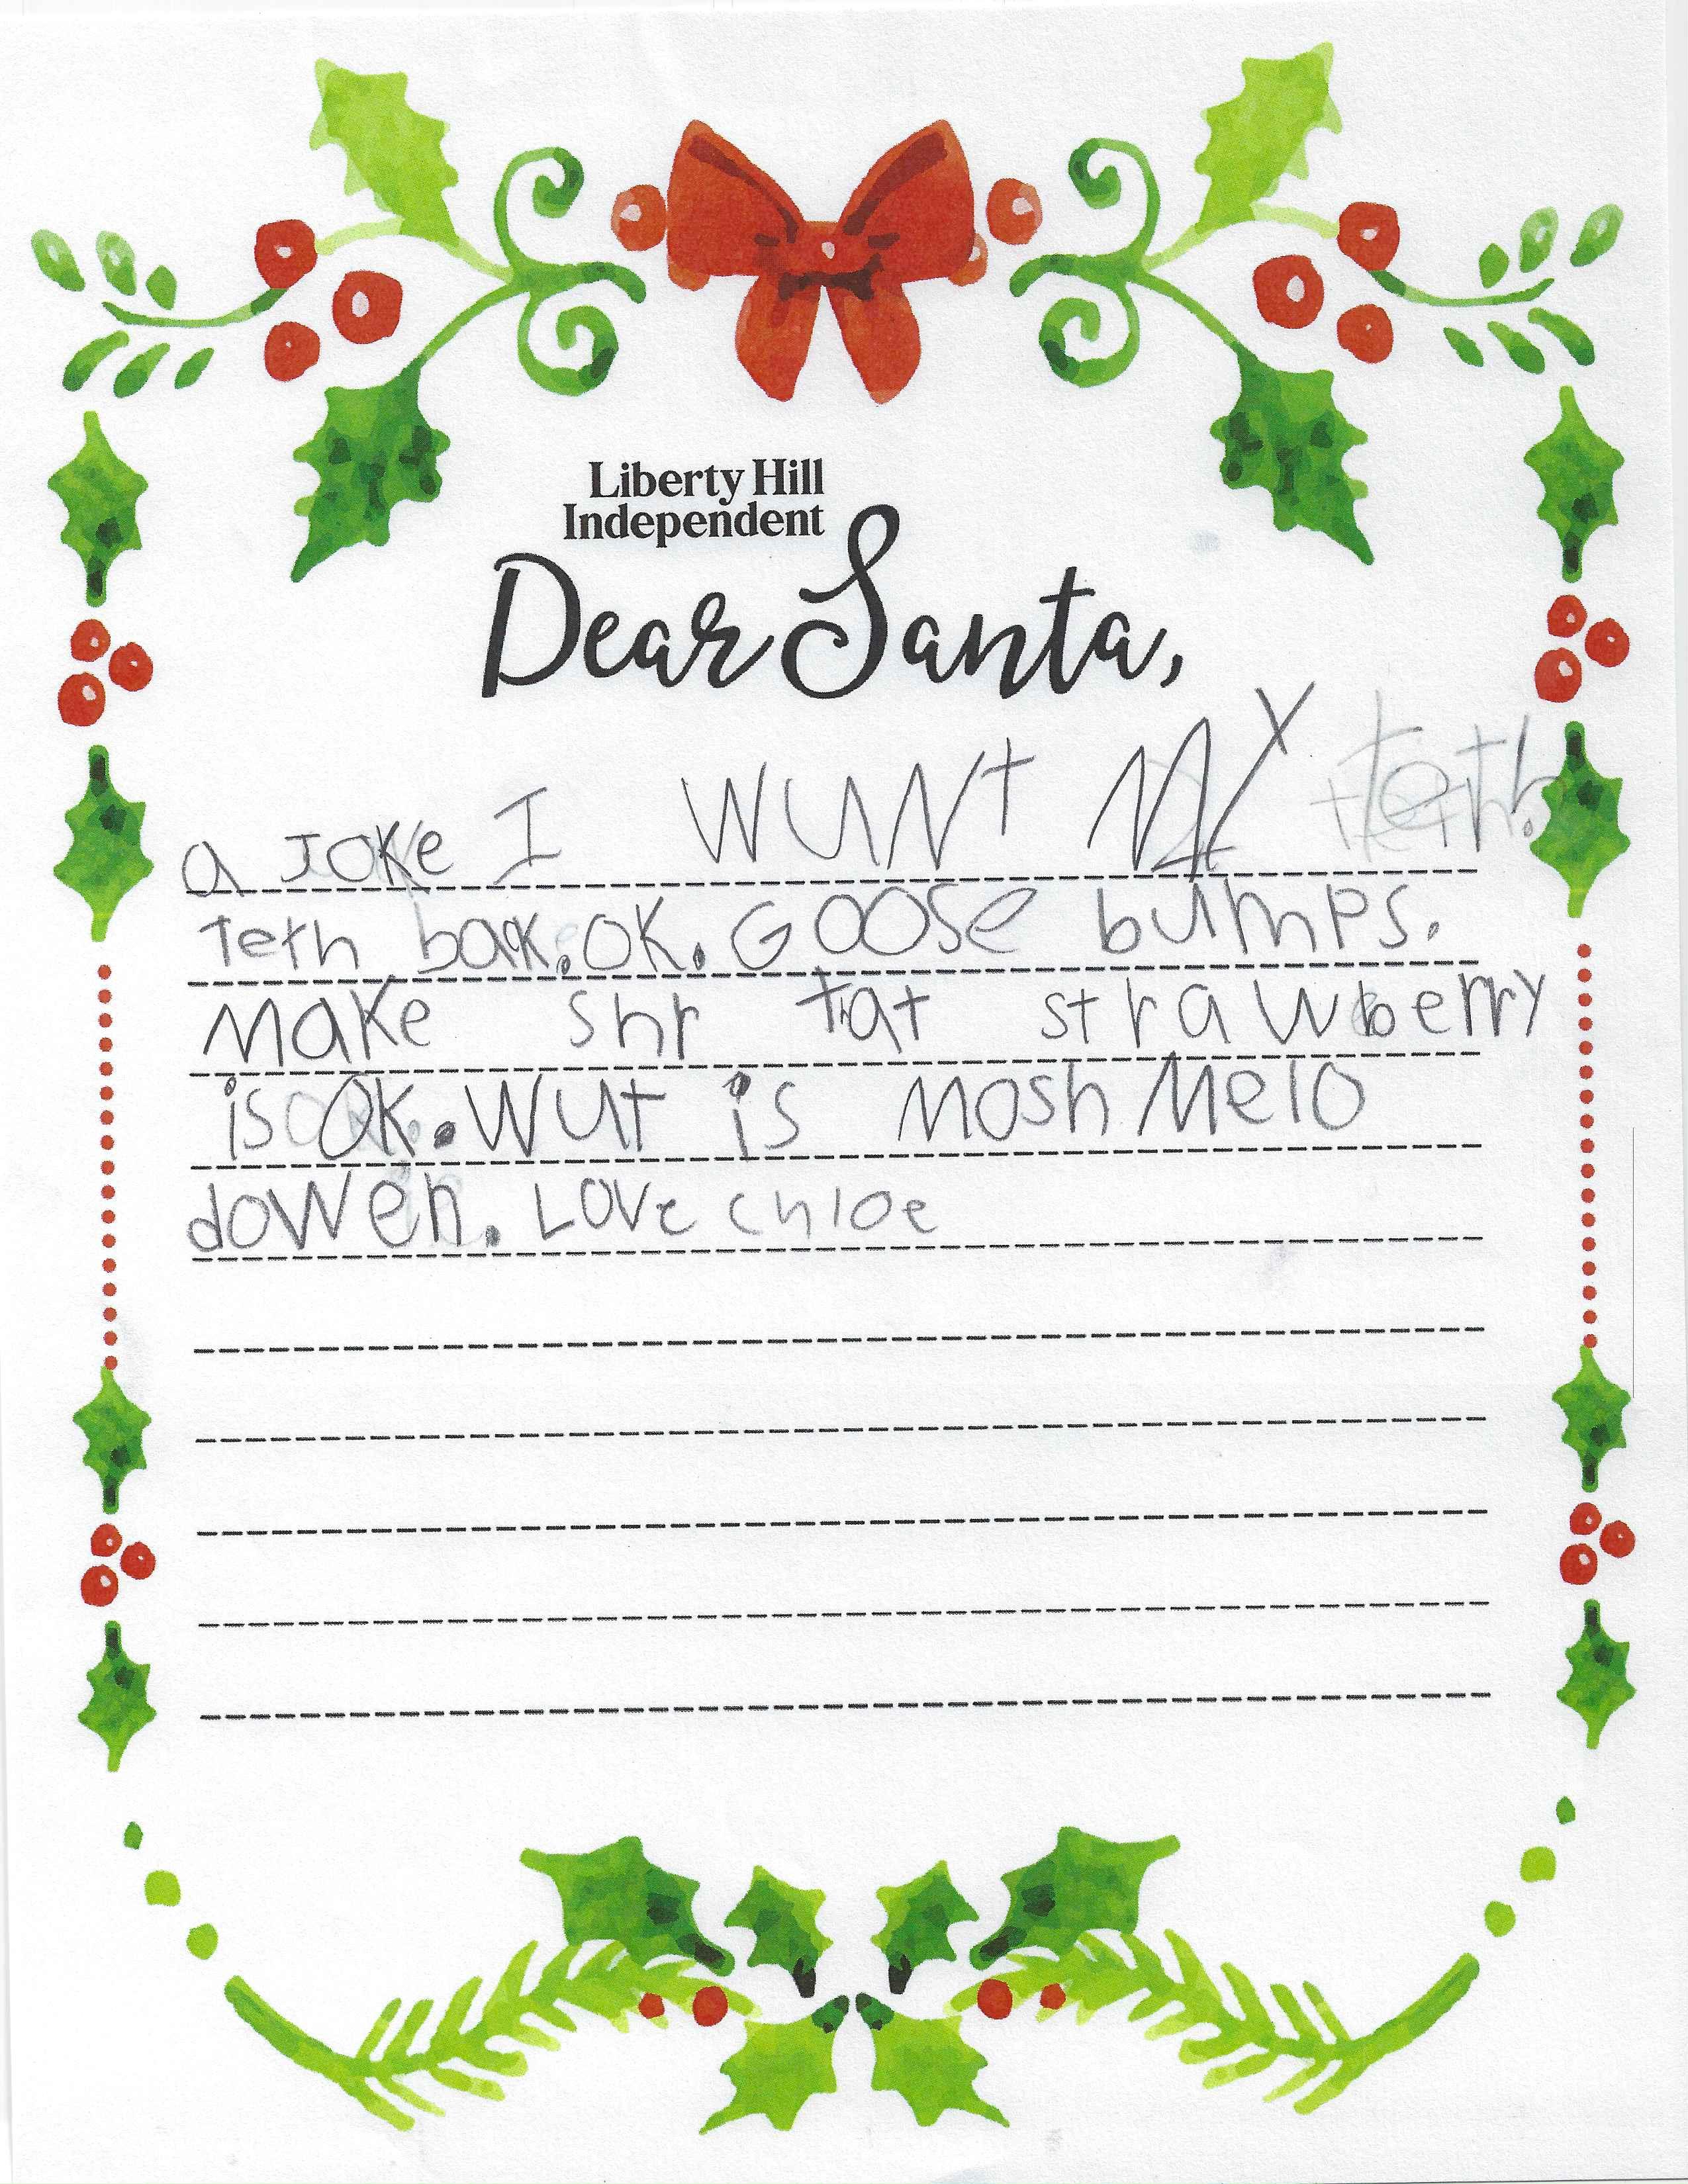 Liberty Hill
Independent
Dear Santa,
a JOKe I WUNt My
Teth bak. OK. GOOSe bumps.
Make shr tat strawberry
is OK. WUt is MoshMelo
doWen. LOVe chloe